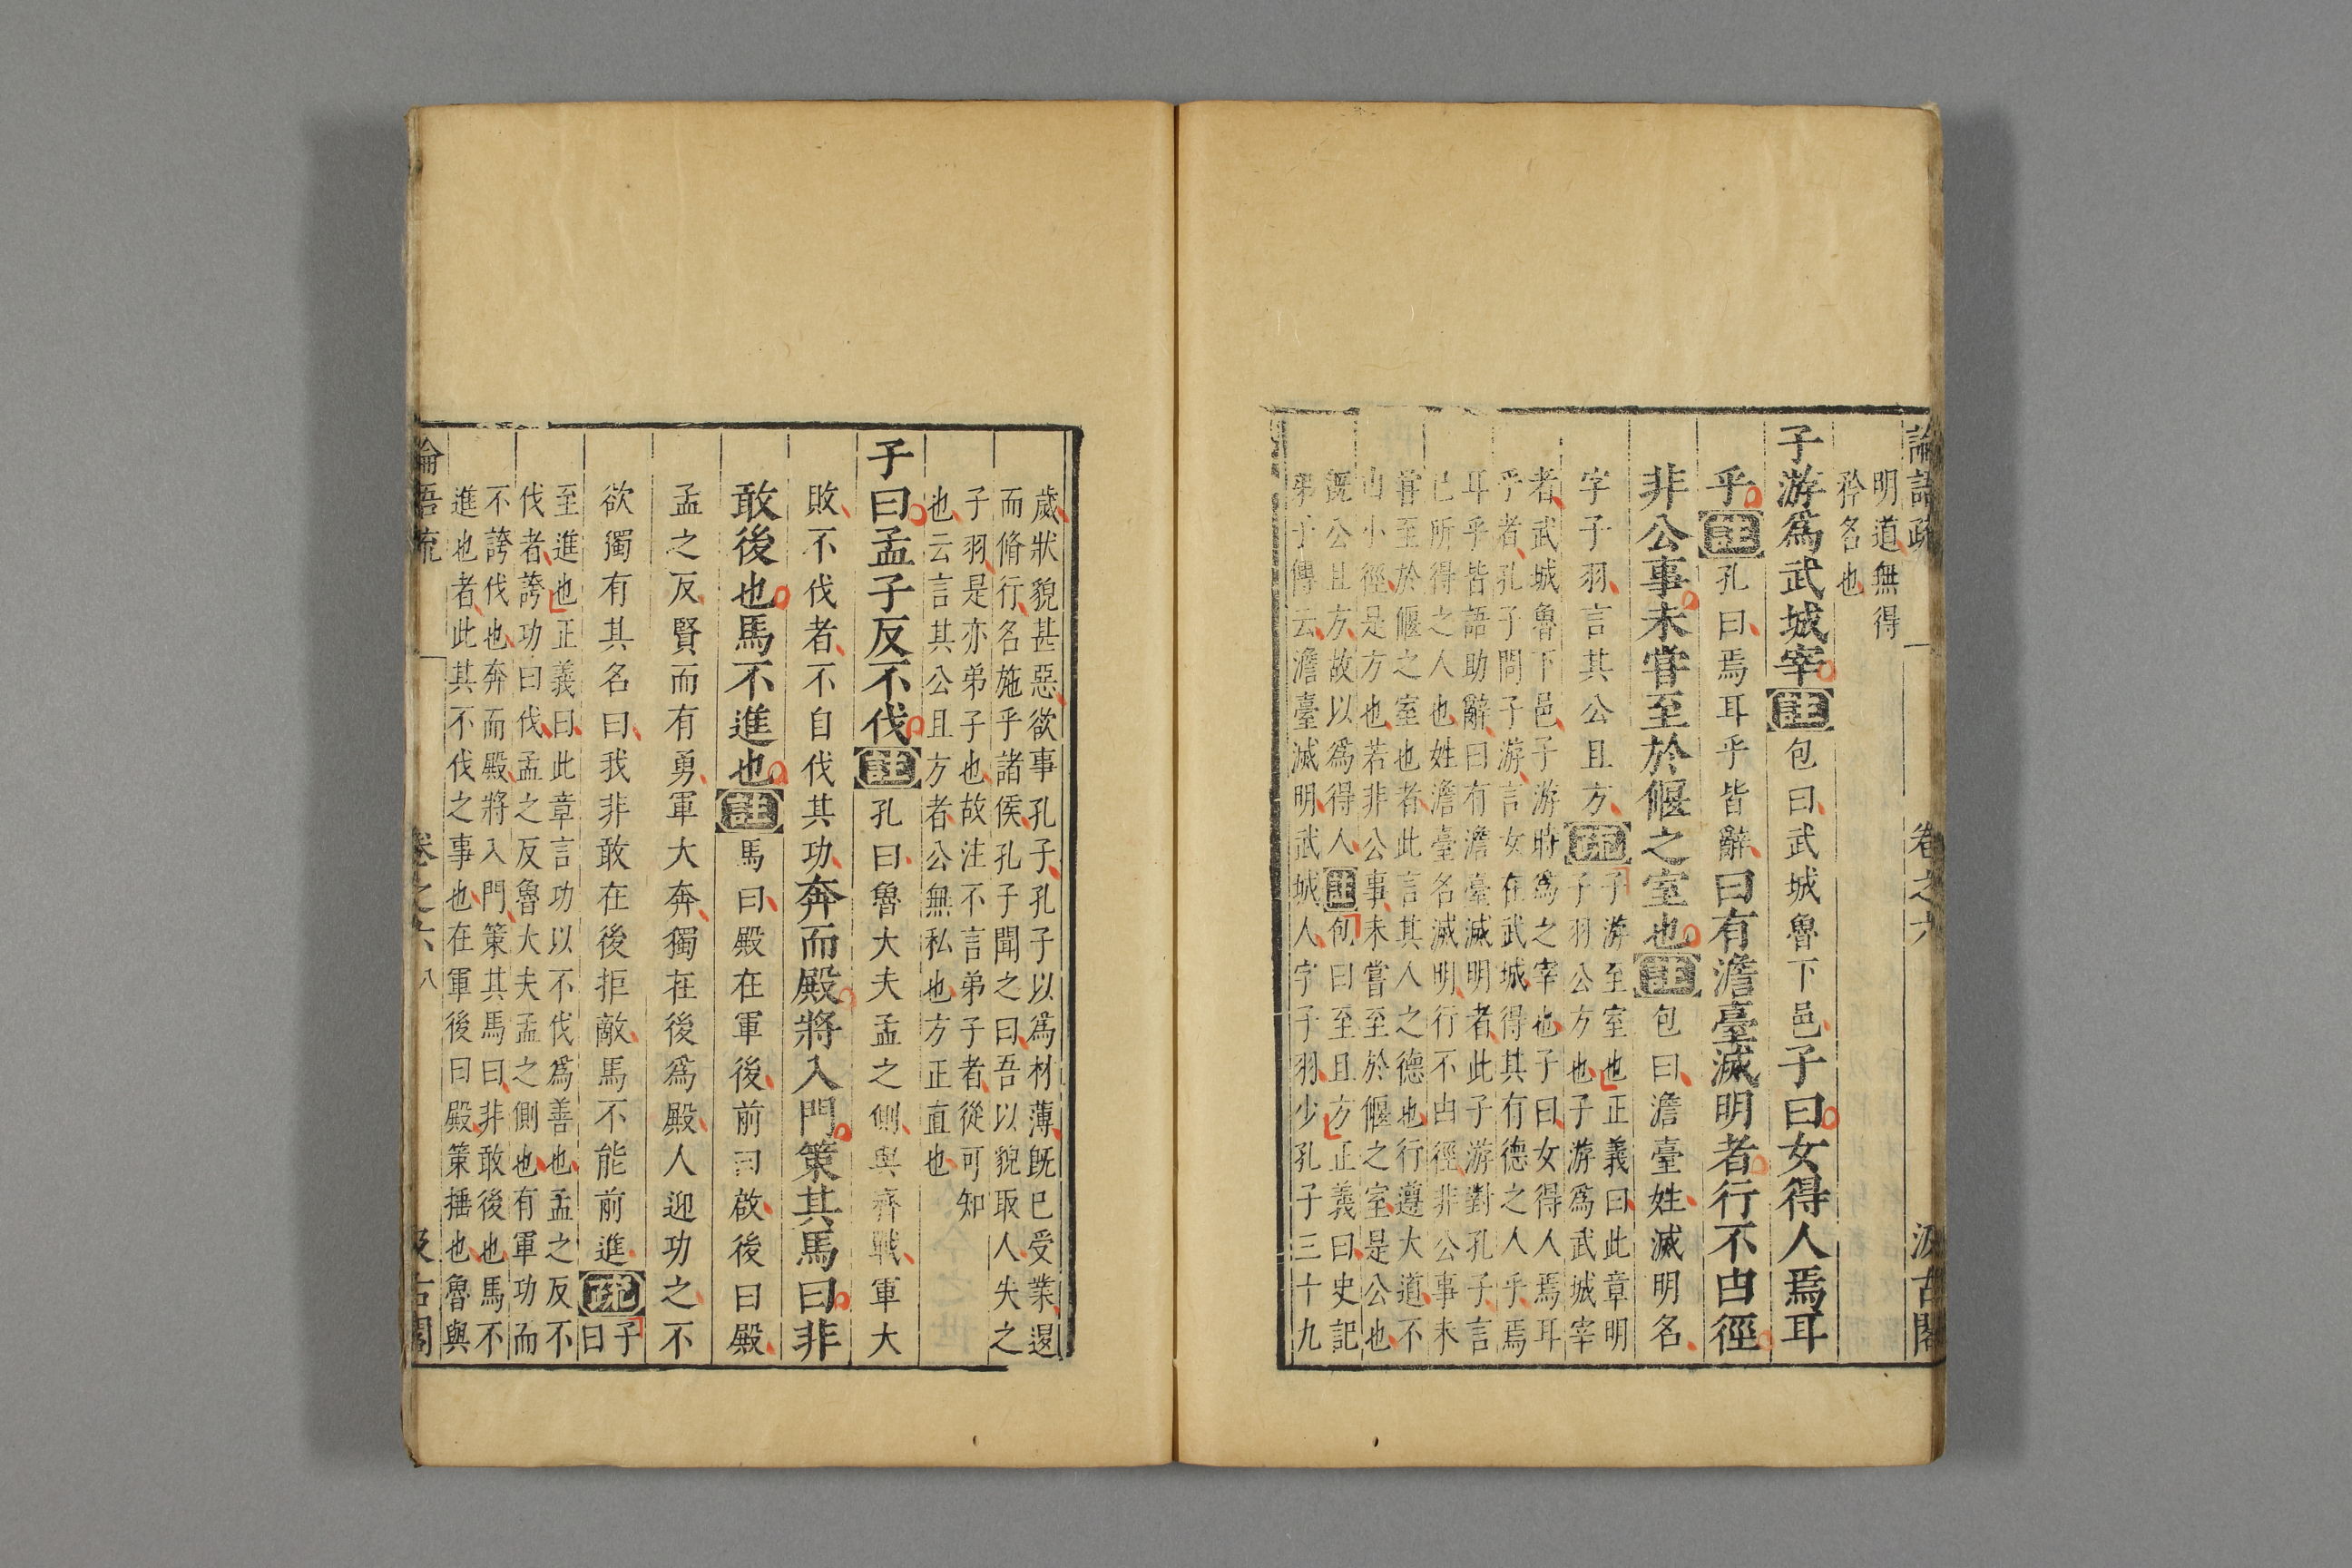 論語疏
卷之六
汲古閣
明道無得
矜名也
子游爲武城宰註包曰武城魯下邑子曰女得人焉耳
乎註孔曰焉耳乎皆辭曰有澹臺滅明者行不由徑
非公事未嘗至於偃之室也註包曰澹臺姓滅明名
字子羽言其公且方疏
子游至室也正義曰此章明
子羽公方也子游爲武城宰
者武城魯下邑子游時爲之宰也子曰女得人焉耳
乎者孔子問子游言女在武城得其有德之人乎焉
耳乎皆語助辭曰有澹臺滅明者此子游對孔子言
已所得之人也姓澹臺名滅明行不由徑非公事未
嘗至於偃之室也者此言其人之德也行遵大道不
由小徑是方也若非公事未嘗至於偃之室是公也
既公且方故以爲得人註包曰至且方正義曰史記
弟子傳云澹臺滅明武城人字子羽少孔子三十九
歲狀貌甚惡欲事孔子孔子以爲材薄既已受業退
而脩行名施乎諸侯孔子聞之曰吾以貌取人失之
子羽是亦弟子也故注不言弟子者從可知
也云言其公且方者公無私也方正直也
子曰孟子反不伐註孔曰魯大夫孟之側與齊戰軍大
敗不伐者不自伐其功奔而殿將入門策其馬曰非
敢後也馬不進也註馬曰殿在軍後前曰啟後曰殿
孟之反賢而有勇軍大奔獨在後爲殿人迎功之不
欲獨有其名曰我非敢在後拒敵馬不能前進疏
子
曰
至進也正義曰此章言功以不伐爲善也孟之反不
伐者誇功曰伐孟之反魯大夫孟之側也有軍功而
不誇伐也奔而殿將入門策其馬曰非敢後也馬不
進也者此其不伐之事也在軍後曰殿策捶也魯與
卷之六
八